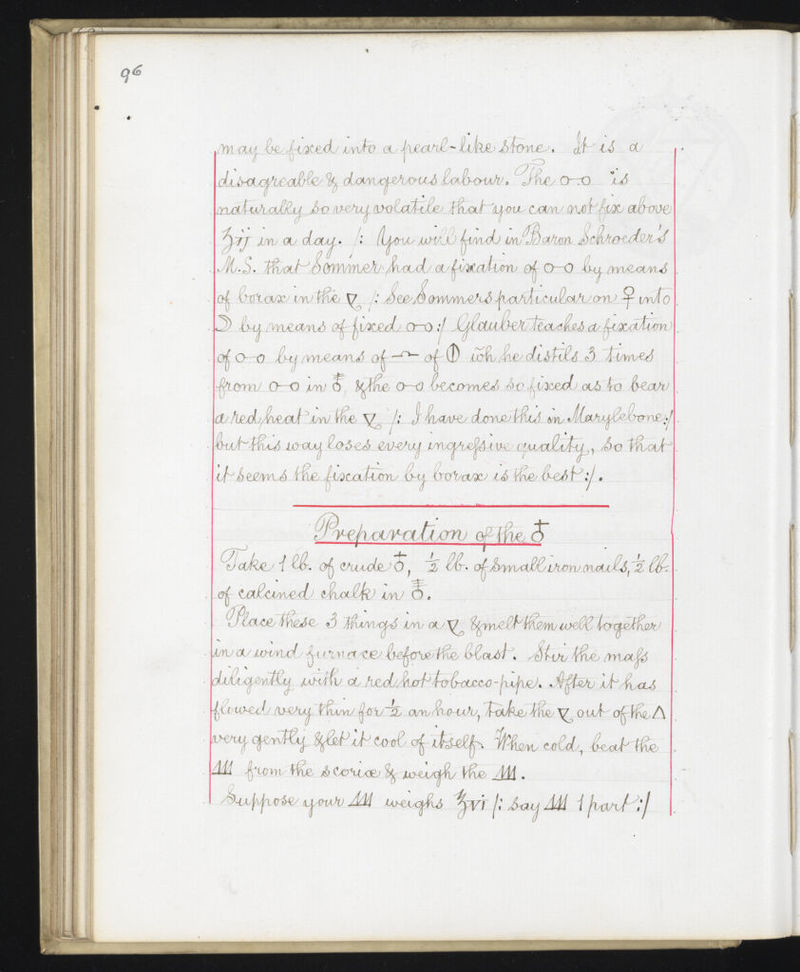 96
may be fixed into a pearl-like stone. It is a
disagreeable & dangerous labour. The o-o is
naturally so very volatile that you can not fix above
ʒij in a day. /: You will find in Baron Schroeder's
M.S. that Sömmer had a fixation of o-o by means
of borax in the 🜄 /: See Sommers particular on ♀ into
☽ by means of fixed o-o :/ Glauber teaches a fixation
of o-o by means of of wh he distils 3 times
from o-o in & the o-o becomes so fixed as to bear
a red heat in the /: I have done this in Marylebone :/
but this way loses every ingressive quality, so that
it seems the fixation by borax is the best :/.
Preparation of the ♁
Take 1 lb. of crude ♁, ½ lb. of small iron nails, ½ lb.
of calcined chalk in
Place these 3 things in a & melt them well together
in a wind furnace before the blast. Stir the mass
diligently with a red hot tobacco-pipe. After it has
flowed very thin for ½ an hour, take the out of the △
very gently & let it cool of itself. When cold, beat the
from the scoriæ & weigh the
Suppose your weighs ʒvi /: say 1 part :/